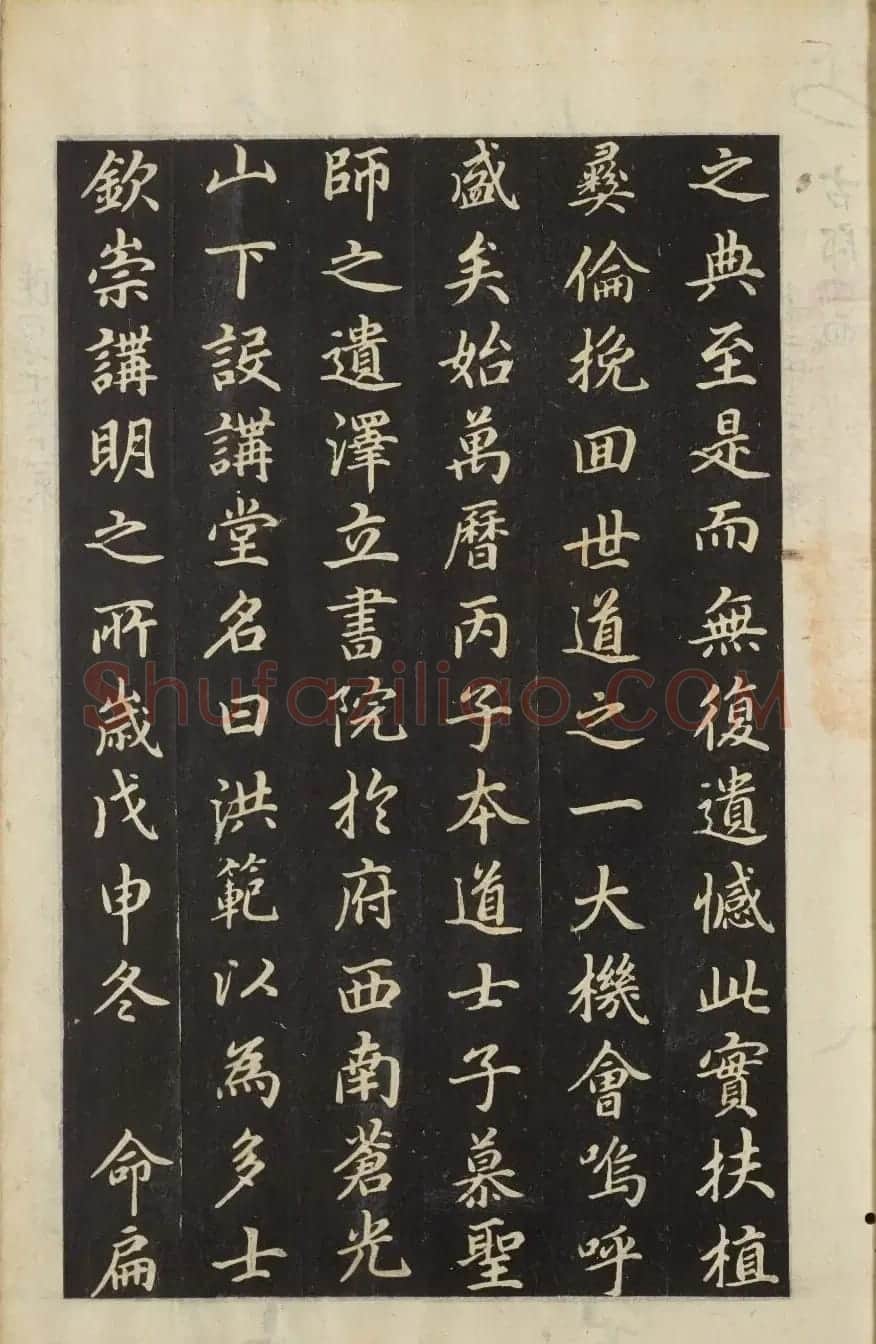 之典至是而無復遺憾此實扶植
彛倫挽囬世道之一大機會嗚呼
盛矣始萬曆丙子本道士子慕聖
師之遺澤立書院於府西南蒼光
山下設講堂名曰洪範以為多士
欽崇講明之所歲戊申冬　命扁
Shufaziliao.COM